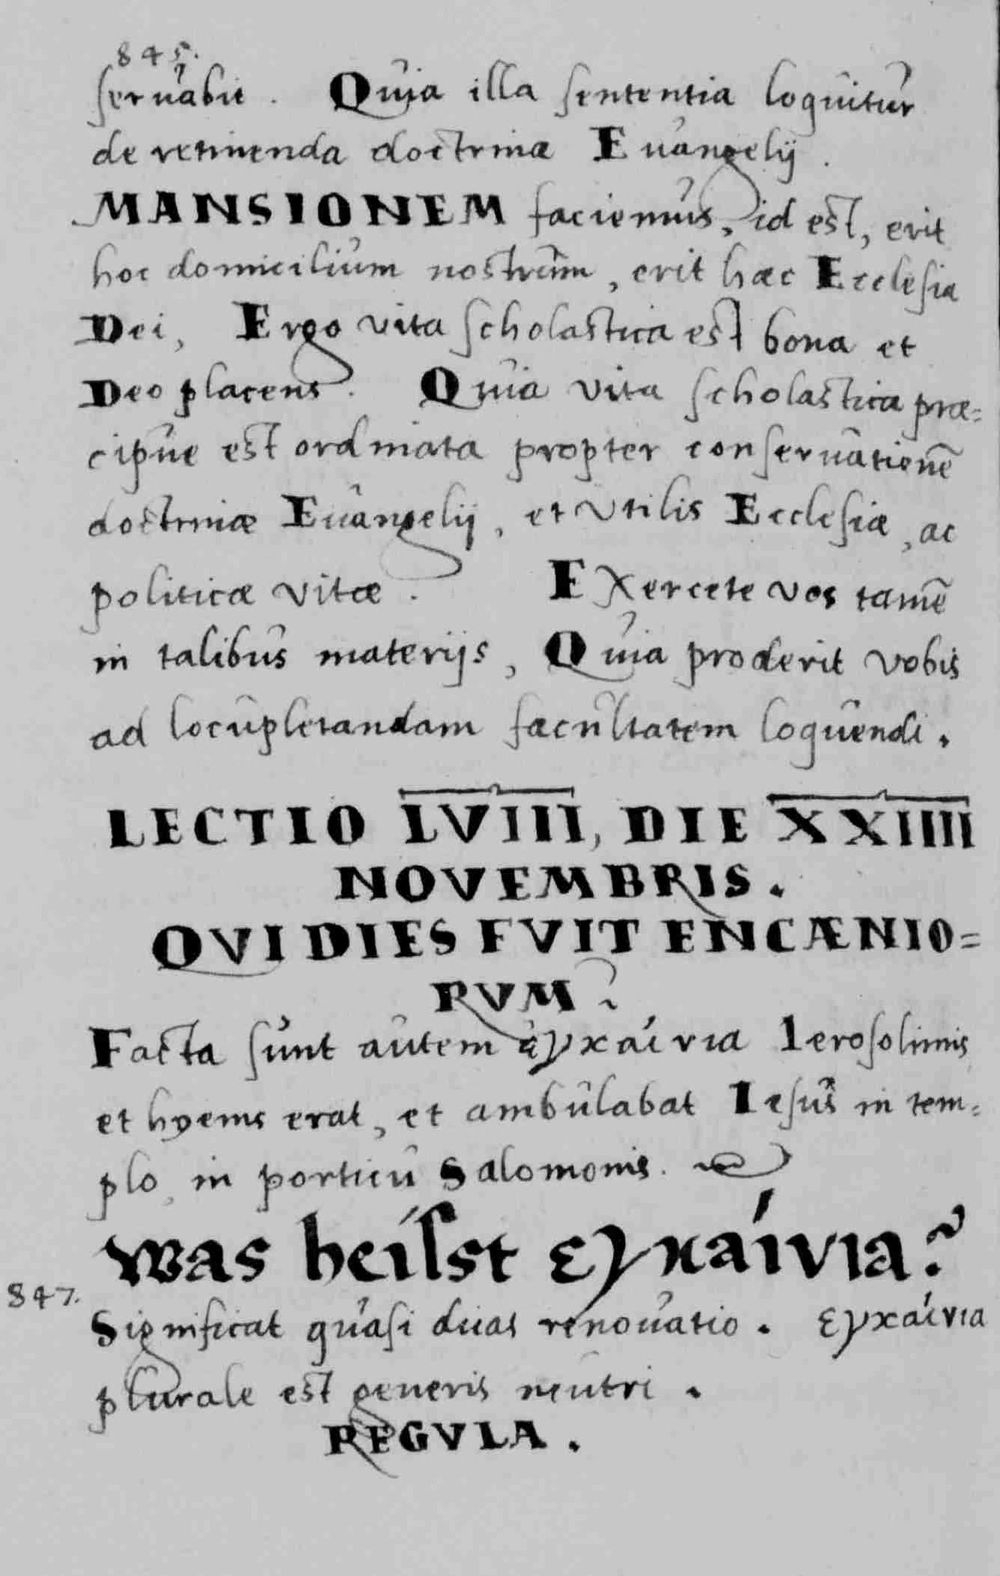 845.
seruabit. Quia illa sententia loquitur
de retinenda doctrina Euangelij.
MANSIONEM faciemus, id est, erit
hoc domicilium nostrum, erit haec Ecclesia
Dei, Ergo vita scholastica est bona et
Deo placens. Quia vita scholastica præ=
cipue est ordinata propter conseruationē
doctrinæ Euangelij, et vtilis Ecclesiæ, ac
politicæ vitæ. Exercete vos tamē
in talibus materijs, Quia proderit vobis
ad locupletandam facultatem loquendi.
LECTIO LVIII, DIE XXIIII
NOVEMBRIS.
QVI DIES FVIT ENCÆNIO=
RVM?
Facta sunt autem ἐγκαίνια Ierosolimis
et hyems erat, et ambulabat Iesus in tem=
plo, in porticu Salomonis.
Was heisst εγκαίνια?
847.
Significat quasi duas renouatio. εγκαίνια
plurale est generis neutri.
REGVLA.